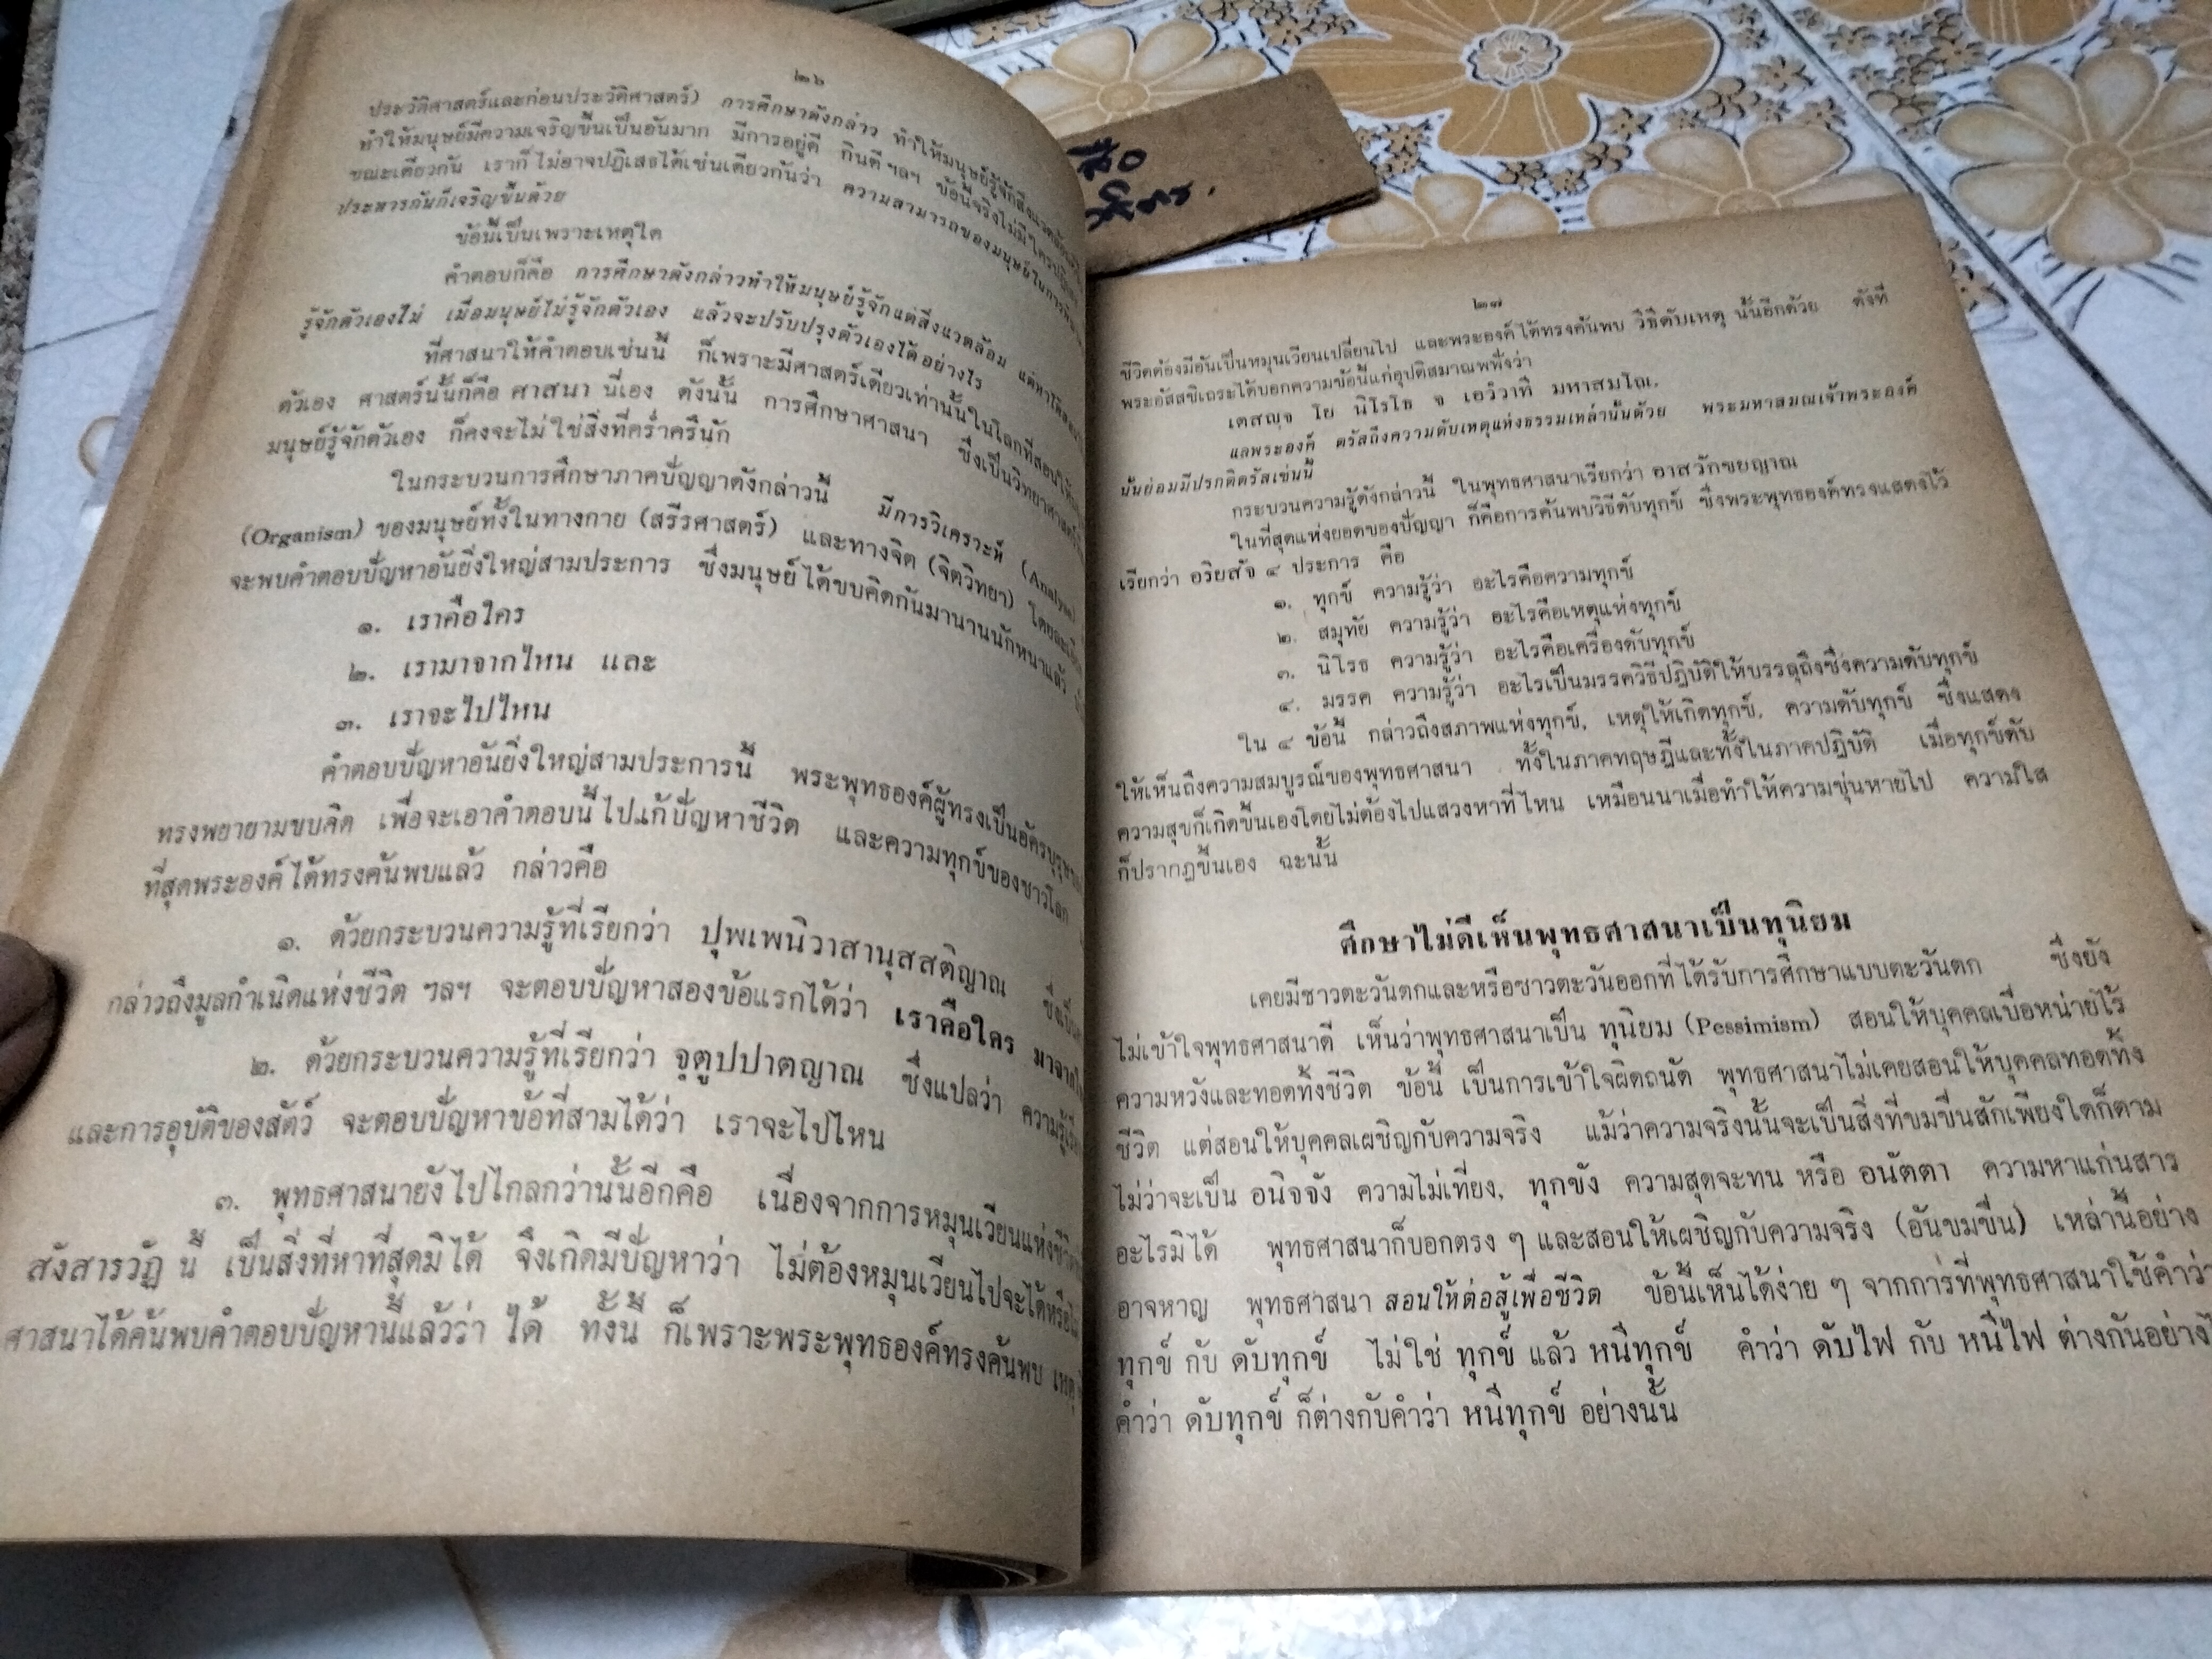 ๒๖
ประวัติศาสตร์และก่อนประวัติศาสตร์) การศึกษาดังกล่าว ทำให้มนุษย์รู้จักสิ่งแวดล้อม
ทำให้มนุษย์มีความเจริญขึ้นเป็นอันมาก มีการอยู่ดี กินดี ฯลฯ ข้อนี้จริงไม่มีใครปฏิเสธ
ขณะเดียวกัน เราก็ไม่อาจปฏิเสธได้เช่นเดียวกันว่า ความสามารถของมนุษย์ในการ
ประหารกันก็เจริญขึ้นด้วย
ข้อนี้เป็นเพราะเหตุใด
คำตอบก็คือ การศึกษาดังกล่าวทำให้มนุษย์รู้จักแต่สิ่งแวดล้อม แต่หาได้
รู้จักตัวเองไม่ เมื่อมนุษย์ไม่รู้จักตัวเอง แล้วจะปรับปรุงตัวเองได้อย่างไร
ที่ศาสนาให้คำตอบเช่นนี้ ก็เพราะมีศาสตร์เดียวเท่านั้นในโลกที่สอนให้
ตัวเอง ศาสตร์นั้นก็คือ ศาสนา นี่เอง ดังนั้น การศึกษาศาสนา ซึ่งเป็นวิทยาศาสตร์
มนุษย์รู้จักตัวเอง ก็คงจะไม่ใช่สิ่งที่คร่ำครึนัก
ในกระบวนการศึกษาภาคปัญญาดังกล่าวนี้ มีการวิเคราะห์
(Organism) ของมนุษย์ทั้งในทางกาย (สรีรศาสตร์) และทางจิต (จิตวิทยา)
จะพบคำตอบปัญหาอันยิ่งใหญ่สามประการ ซึ่งมนุษย์ได้ขบคิดกันมานานนักหนาแล้ว
๑. เราคือใคร
๒. เรามาจากไหน และ
๓. เราจะไปไหน
คำตอบปัญหาอันยิ่งใหญ่สามประการนี้ พระพุทธองค์ผู้ทรงเป็นอัครบุรุษ
ทรงพยายามขบคิด เพื่อจะเอาคำตอบนี้ไปแก้ปัญหาชีวิต และความทุกข์ของชาวโลก
ที่สุดพระองค์ได้ทรงค้นพบแล้ว กล่าวคือ
๑. ด้วยกระบวนความรู้ที่เรียกว่า ปุพเพนิวาสานุสสติญาณ
กล่าวถึงมูลกำเนิดแห่งชีวิต ฯลฯ จะตอบปัญหาสองข้อแรกได้ว่า เราคือใคร
๒. ด้วยกระบวนความรู้ที่เรียกว่า จุตูปปาตญาณ ซึ่งแปลว่า
และการอุบัติของสัตว์ จะตอบปัญหาข้อที่สามได้ว่า เราจะไปไหน
๓. พุทธศาสนายังไปไกลกว่านั้นอีกคือ เนื่องจากการหมุนเวียนแห่งชีวิต
สังสารวัฏ นี้ เป็นสิ่งที่หาที่สุดมิได้ จึงเกิดมีปัญหาว่า ไม่ต้องหมุนเวียนไปจะได้หรือไม่
ศาสนาได้ค้นพบคำตอบปัญหานี้แล้วว่า ได้ ทั้งนี้ ก็เพราะพระพุทธองค์ทรงค้นพบ เหตุ
๒๗
ชีวิตต้องมีอันเป็นหมุนเวียนเปลี่ยนไป และพระองค์ได้ทรงค้นพบ วิธีดับเหตุ นั้นอีกด้วย ดังที่
พระอัสสชิเถระได้บอกความข้อนี้แก่อุปติสมาณพพึ่งว่า
เตสญฺจ โย นิโรโธ จ เอวํวาที มหาสมโณ.
แลพระองค์ ตรัสถึงความดับเหตุแห่งธรรมเหล่านั้นด้วย พระมหาสมณเจ้าพระองค์
นั้นย่อมมีปรกติตรัสเช่นนี้
กระบวนความรู้ดังกล่าวนี้ ในพุทธศาสนาเรียกว่า อาสวักขยญาณ
ในที่สุดแห่งยอดของปัญญา ก็คือการค้นพบวิธีดับทุกข์ ซึ่งพระพุทธองค์ทรงแสดงไว้
เรียกว่า อริยสัจ ๔ ประการ คือ
๑. ทุกข์ ความรู้ว่า อะไรคือความทุกข์
๒. สมุทัย ความรู้ว่า อะไรคือเหตุแห่งทุกข์
๓. นิโรธ ความรู้ว่า อะไรคือเครื่องดับทุกข์
๔. มรรค ความรู้ว่า อะไรเป็นมรรควิธีปฏิบัติให้บรรลุถึงซึ่งความดับทุกข์
ใน ๔ ข้อนี้ กล่าวถึงสภาพแห่งทุกข์, เหตุให้เกิดทุกข์, ความดับทุกข์ ซึ่งแสดง
ให้เห็นถึงความสมบูรณ์ของพุทธศาสนา ทั้งในภาคทฤษฎีและทั้งในภาคปฏิบัติ เมื่อทุกข์ดับ
ความสุขก็เกิดขึ้นเองโดยไม่ต้องไปแสวงหาที่ไหน เหมือนนาเมื่อทำให้ความขุ่นหายไป ความใส
ก็ปรากฏขึ้นเอง ฉะนั้น
ศึกษาไม่ดีเห็นพุทธศาสนาเป็นทุนิยม
เคยมีชาวตะวันตกและหรือชาวตะวันออกที่ได้รับการศึกษาแบบตะวันตก ซึ่งยัง
ไม่เข้าใจพุทธศาสนาดี เห็นว่าพุทธศาสนาเป็น ทุนิยม (Pessimism) สอนให้บุคคลเบื่อหน่ายไร้
ความหวังและทอดทิ้งชีวิต ข้อนี้ เป็นการเข้าใจผิดถนัด พุทธศาสนาไม่เคยสอนให้บุคคลทอดทิ้ง
ชีวิต แต่สอนให้บุคคลเผชิญกับความจริง แม้ว่าความจริงนั้นจะเป็นสิ่งที่ขมขื่นสักเพียงใดก็ตาม
ไม่ว่าจะเป็น อนิจจัง ความไม่เที่ยง, ทุกขัง ความสุดจะทน หรือ อนัตตา ความหาแก่นสาร
อะไรมิได้ พุทธศาสนาก็บอกตรง ๆ และสอนให้เผชิญกับความจริง (อันขมขื่น) เหล่านี้อย่าง
อาจหาญ พุทธศาสนา สอนให้ต่อสู้เพื่อชีวิต ข้อนี้เห็นได้ง่าย ๆ จากการที่พุทธศาสนาใช้คำว่า
ทุกข์ กับ ดับทุกข์ ไม่ใช่ ทุกข์ แล้ว หนีทุกข์ คำว่า ดับไฟ กับ หนีไฟ ต่างกันอย่างไร
คำว่า ดับทุกข์ ก็ต่างกับคำว่า หนีทุกข์ อย่างนั้น